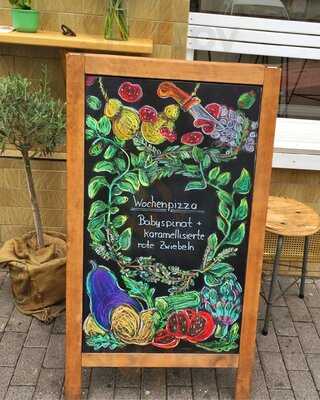 Wochenpizza
Babyspinat +
karamellisierte
rote Zwiebeln